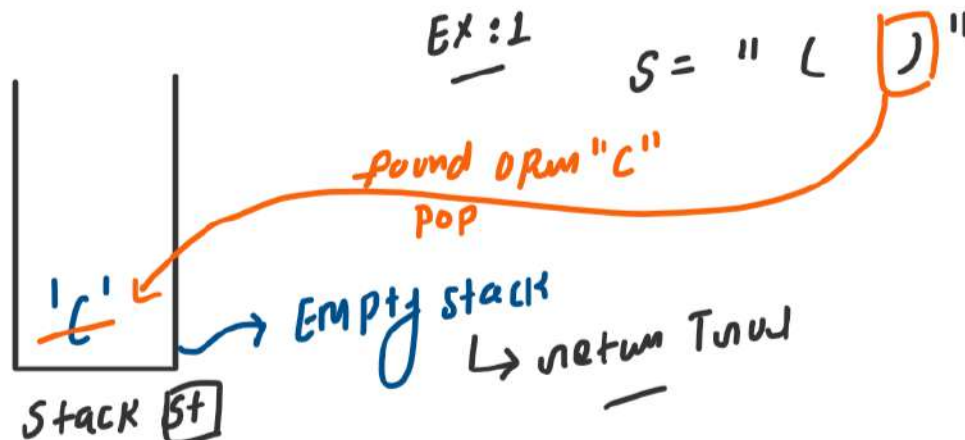 Ex:1
S = " ( ) "
found open "("
pop
'('
Empty stack
↳ return True
Stack st